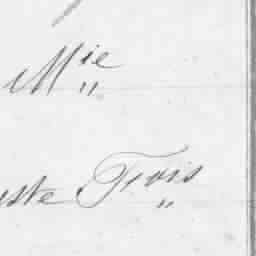 Mie
"
uste Frois
"